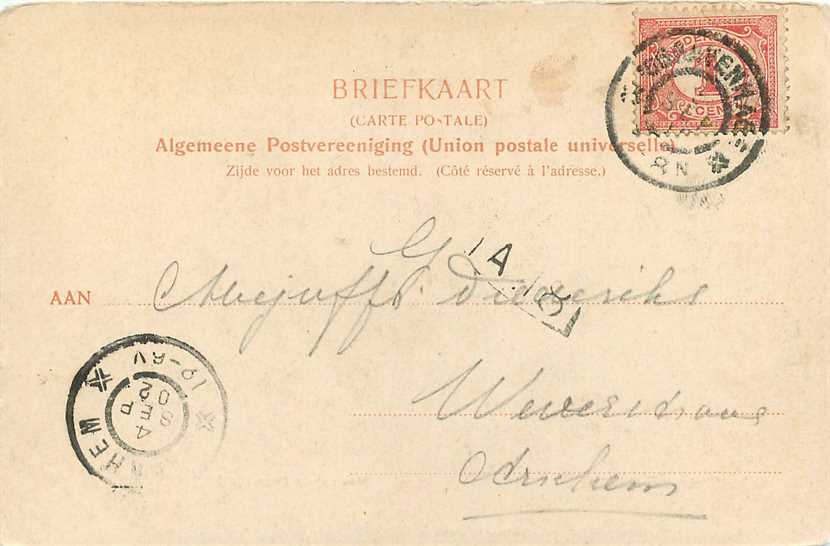 BRIEFKAART
(CARTE POSTALE)
Algemeene Postvereeniging (Union postale universelle)
Zijde voor het adres bestemd. (Côté réservé à l'adresse.)
AAN Mejuffr Diederiks
G
A
Arnhem
ARNHEM
4
SEP
02